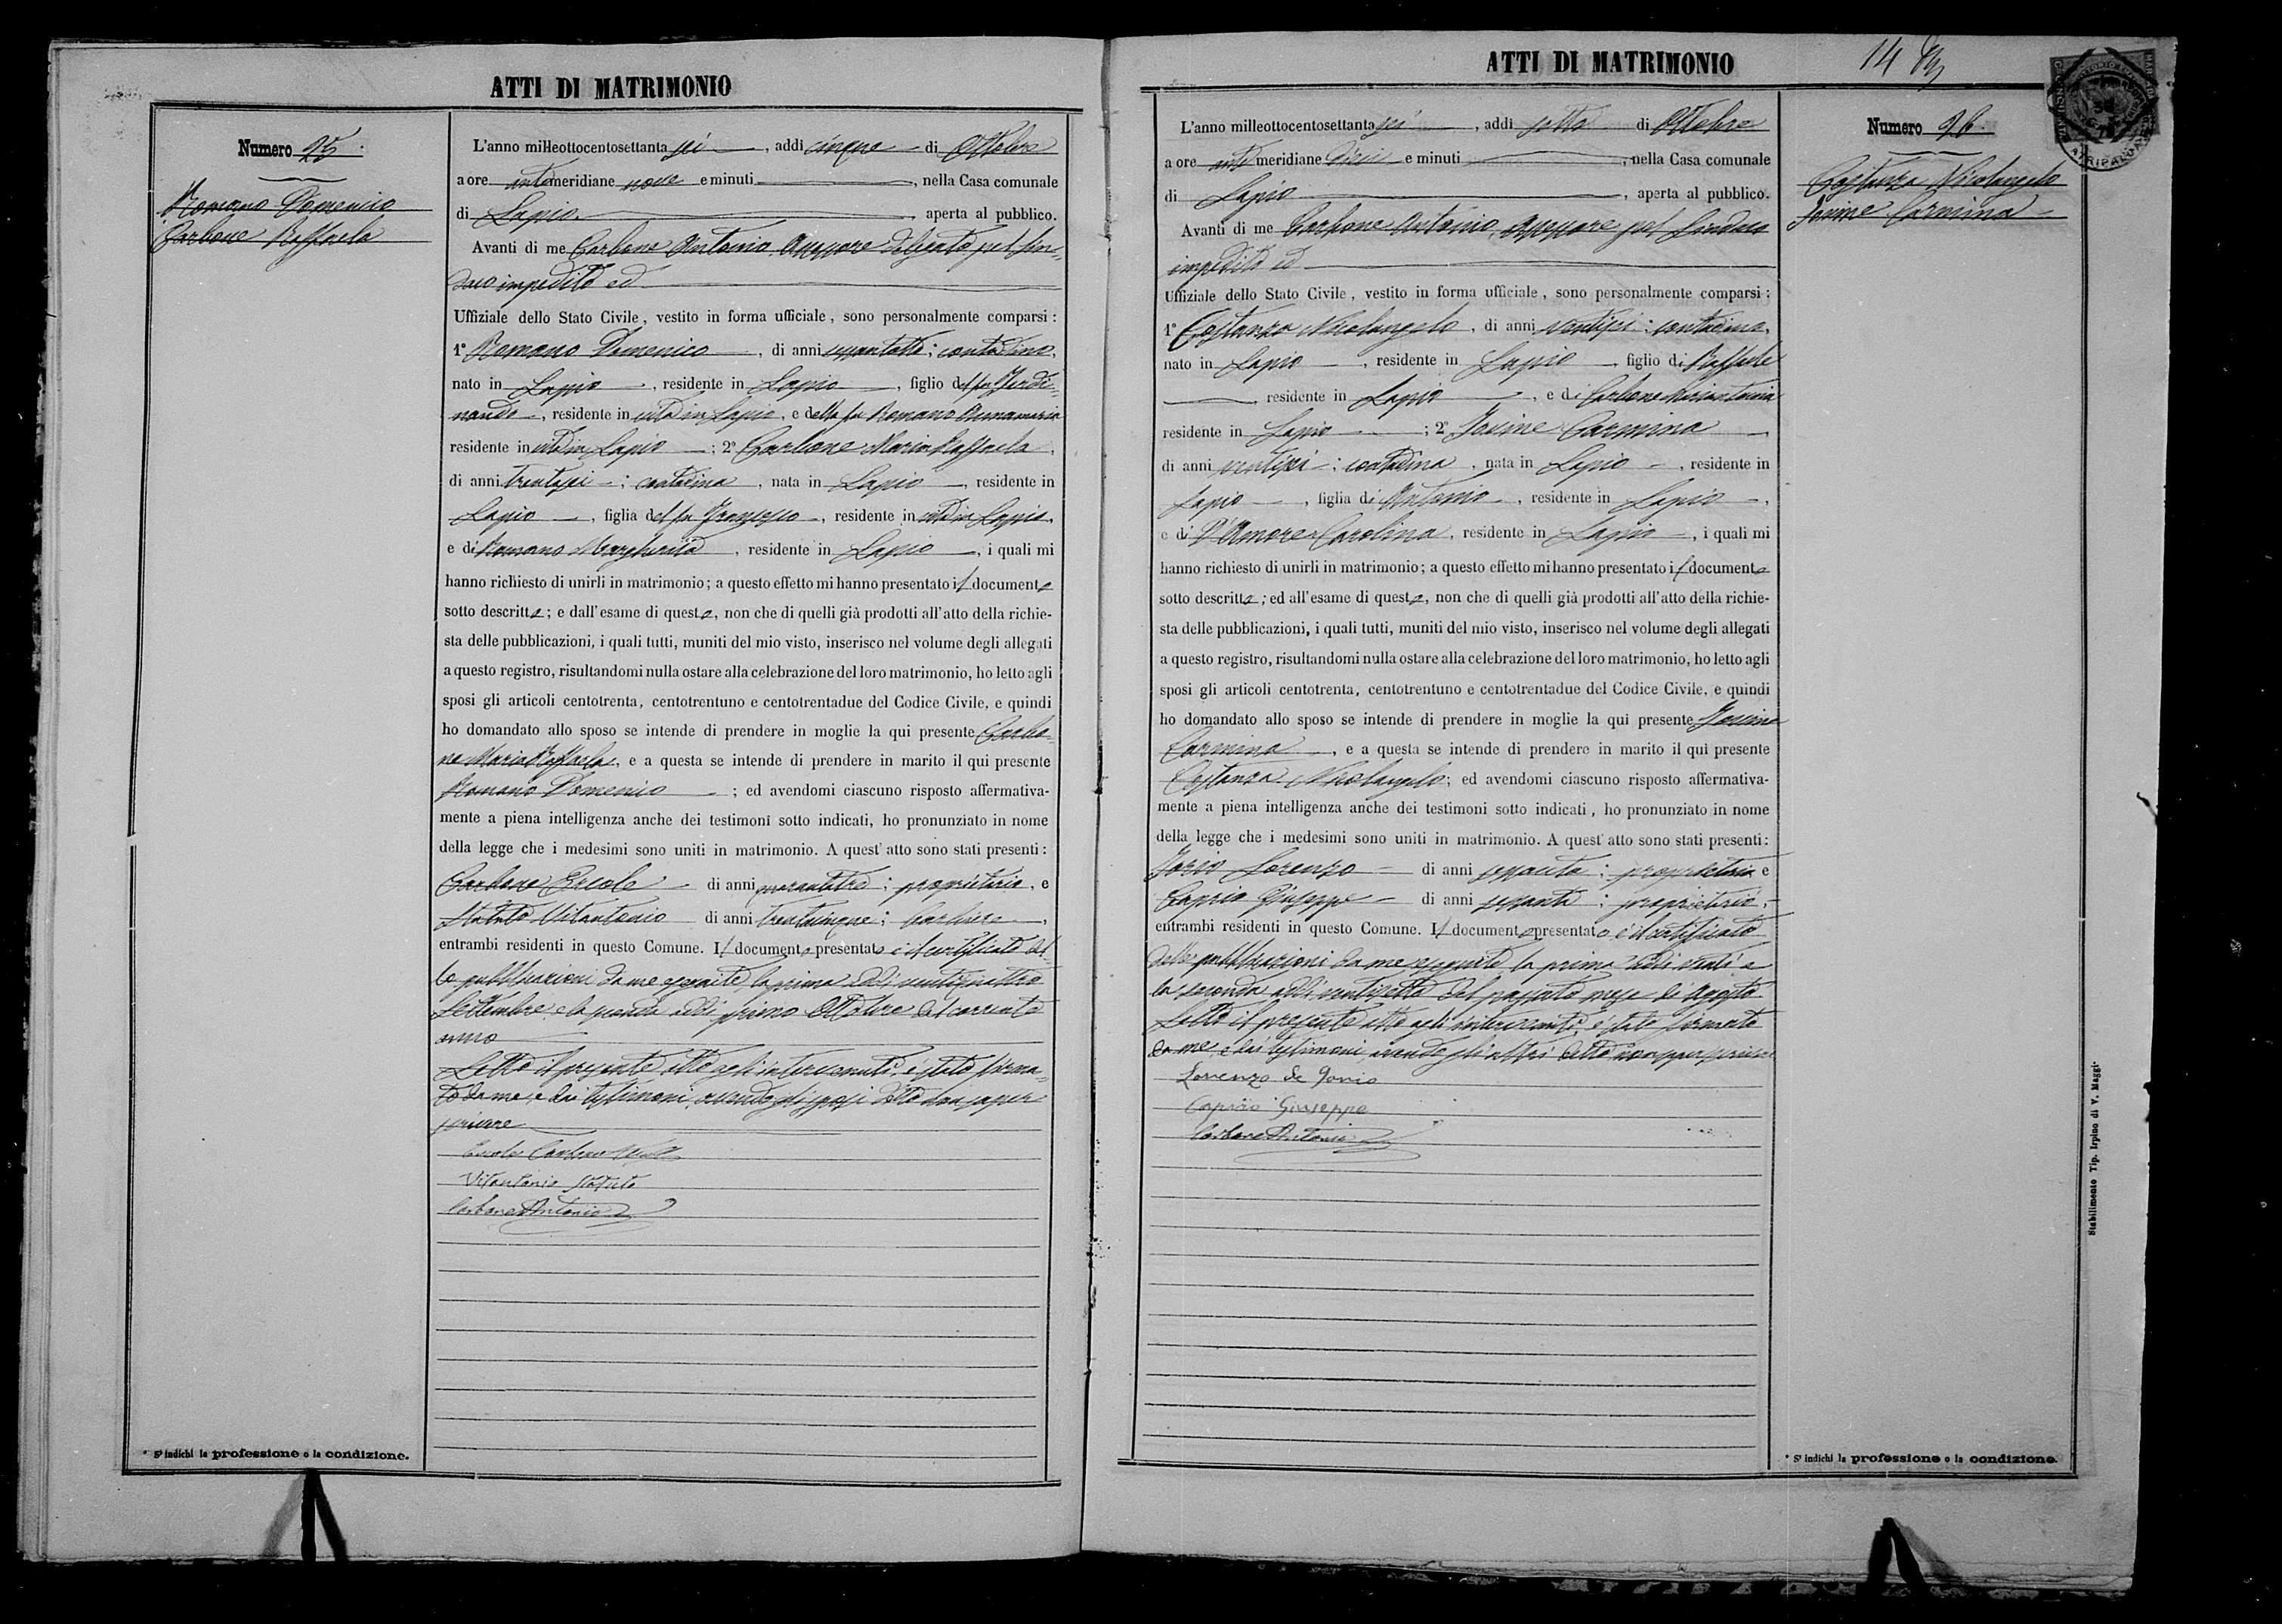 ATTI DI MATRIMONIO
Numero 25.
Romano Domenico
Carbone Raffaela
L'anno milleottocentosettanta sei, addi cinque di Ottobre
a ore antemeridiane nove e minuti, nella Casa comunale
di Lapio, aperta al pubblico.
Avanti di me Carbone Antonio Assessore delegato pel Sin-
daco impedito ed
Uffiziale dello Stato Civile, vestito in forma ufficiale, sono personalmente comparsi:
1° Romano Domenico, di anni; contadino,
nato in Lapio, residente in Lapio, figlio del fu Ferdi-
nando, residente in vita in Lapio, e della fu Romano Annamaria
residente in vita in Lapio; 2° Carbone Maria Raffaela,
di anni trentasei; contadina, nata in Lapio, residente in
Lapio, figlia del fu Francesco, residente in vita in Lapio,
e di Romano Margherita, residente in Lapio, i quali mi
hanno richiesto di unirli in matrimonio; a questo effetto mi hanno presentato il documento
sotto descritto; e dall'esame di questo, non che di quelli già prodotti all'atto della richie-
sta delle pubblicazioni, i quali tutti, muniti del mio visto, inserisco nel volume degli allegati
a questo registro, risultandomi nulla ostare alla celebrazione del loro matrimonio, ho letto agli
sposi gli articoli centotrenta, centotrentuno e centotrentadue del Codice Civile, e quindi
ho domandato allo sposo se intende di prendere in moglie la qui presente Carbo-
ne Maria Raffaela, e a questa se intende di prendere in marito il qui presente
Romano Domenico; ed avendomi ciascuno risposto affermativa-
mente a piena intelligenza anche dei testimoni sotto indicati, ho pronunziato in nome
della legge che i medesimi sono uniti in matrimonio. A quest'atto sono stati presenti:
Carbone Ercole di anni quarantatre; proprietario, e
Statuto Vitantonio di anni trentacinque; barbiere,
entrambi residenti in questo Comune. Il documento presentato è il certificato del-
le pubblicazioni da me eseguite, la prima addì ventiquattro
Settembre e la seconda addì primo Ottobre del corrente
anno
Letto il presente atto agli intervenuti, è stato firma-
to da me, e dai testimoni, avendo gli sposi detto non saper
scrivere
Ercole Carbone
Vitantonio Statuto
Carbone Antonio
* S'indichi la professione o la condizione.
ATTI DI MATRIMONIO
14
Numero 26.
Costanza Nicolangelo
Iovine Carmina
L'anno milleottocentosettanta sei, addi sette di Ottobre
a ore antemeridiane dieci e minuti, nella Casa comunale
di Lapio, aperta al pubblico.
Avanti di me Carbone Antonio, Assessore pel Sindaco
impedito ed
Uffiziale dello Stato Civile, vestito in forma ufficiale, sono personalmente comparsi:
1° Costanza Nicolangelo, di anni ventisei; contadino,
nato in Lapio, residente in Lapio, figlio di Raffaele
, residente in Lapio, e di Carbone Mariantonia
residente in Lapio; 2° Iovine Carmina
di anni ventisei; contadina, nata in Lapio, residente in
Lapio, figlia di Antonio, residente in Lapio,
e di D'Amore Carolina, residente in Lapio, i quali mi
hanno richiesto di unirli in matrimonio; a questo effetto mi hanno presentato il documento
sotto descritto; ed all'esame di questo, non che di quelli già prodotti all'atto della richie-
sta delle pubblicazioni, i quali tutti, muniti del mio visto, inserisco nel volume degli allegati
a questo registro, risultandomi nulla ostare alla celebrazione del loro matrimonio, ho letto agli
sposi gli articoli centotrenta, centotrentuno e centotrentadue del Codice Civile, e quindi
ho domandato allo sposo se intende di prendere in moglie la qui presente Iovine
Carmina, e a questa se intende di prendere in marito il qui presente
Costanza Nicolangelo; ed avendomi ciascuno risposto affermativa-
mente a piena intelligenza anche dei testimoni sotto indicati, ho pronunziato in nome
della legge che i medesimi sono uniti in matrimonio. A quest'atto sono stati presenti:
Lorenzo di anni sessanta; proprietario e
Caprio Giuseppe di anni sessanta; proprietario,
entrambi residenti in questo Comune. Il documento presentato è il certificato
delle pubblicazioni da me eseguite la prima addì venti e
la seconda addì ventisette del passato mese di Agosto
Letto il presente atto agli intervenuti, è stato firmato
da me, e dai testimoni avendo gli altri detto non saper scrivere
Lorenzo de
Caprio Giuseppe
Carbone Antonio
* S'indichi la professione o la condizione.
Stabilimento Tip. Irpino di V. Maggi.
ATRIPALDA